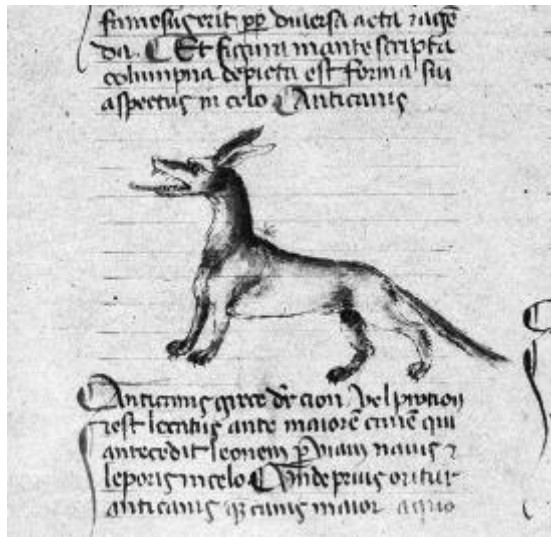 fame fugerit pp diversa acta ⁊ agē
da. Et figura in ante scripta
columpna depicta est forma siu
aspectus in celo Anticanis
Anticanis grece dr cion vel procion
⁊ est locatus ante maiorem canem qui
antecedit leonem p viam navis ⁊
leporis in celo Unde prius oritur
anticanis qz canis maior a quo